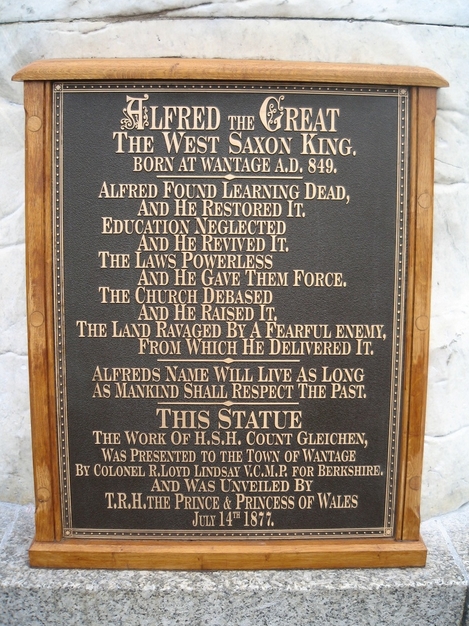 Alfred the Great
The West Saxon King.
Born at Wantage A.D. 849.
Alfred Found Learning Dead,
And He Restored It.
Education Neglected
And He Revived It.
The Laws Powerless
And He Gave Them Force.
The Church Debased
And He Raised It.
The Land Ravaged By A Fearful Enemy,
From Which He Delivered It.
Alfreds Name Will Live As Long
As Mankind Shall Respect The Past.
This Statue
The Work Of H.S.H. Count Gleichen,
Was Presented to the Town of Wantage
By Colonel R.Loyd Lindsay V.C.M.P. for Berkshire.
And Was Unveiled By
T.R.H.the Prince & Princess of Wales
July 14th 1877.